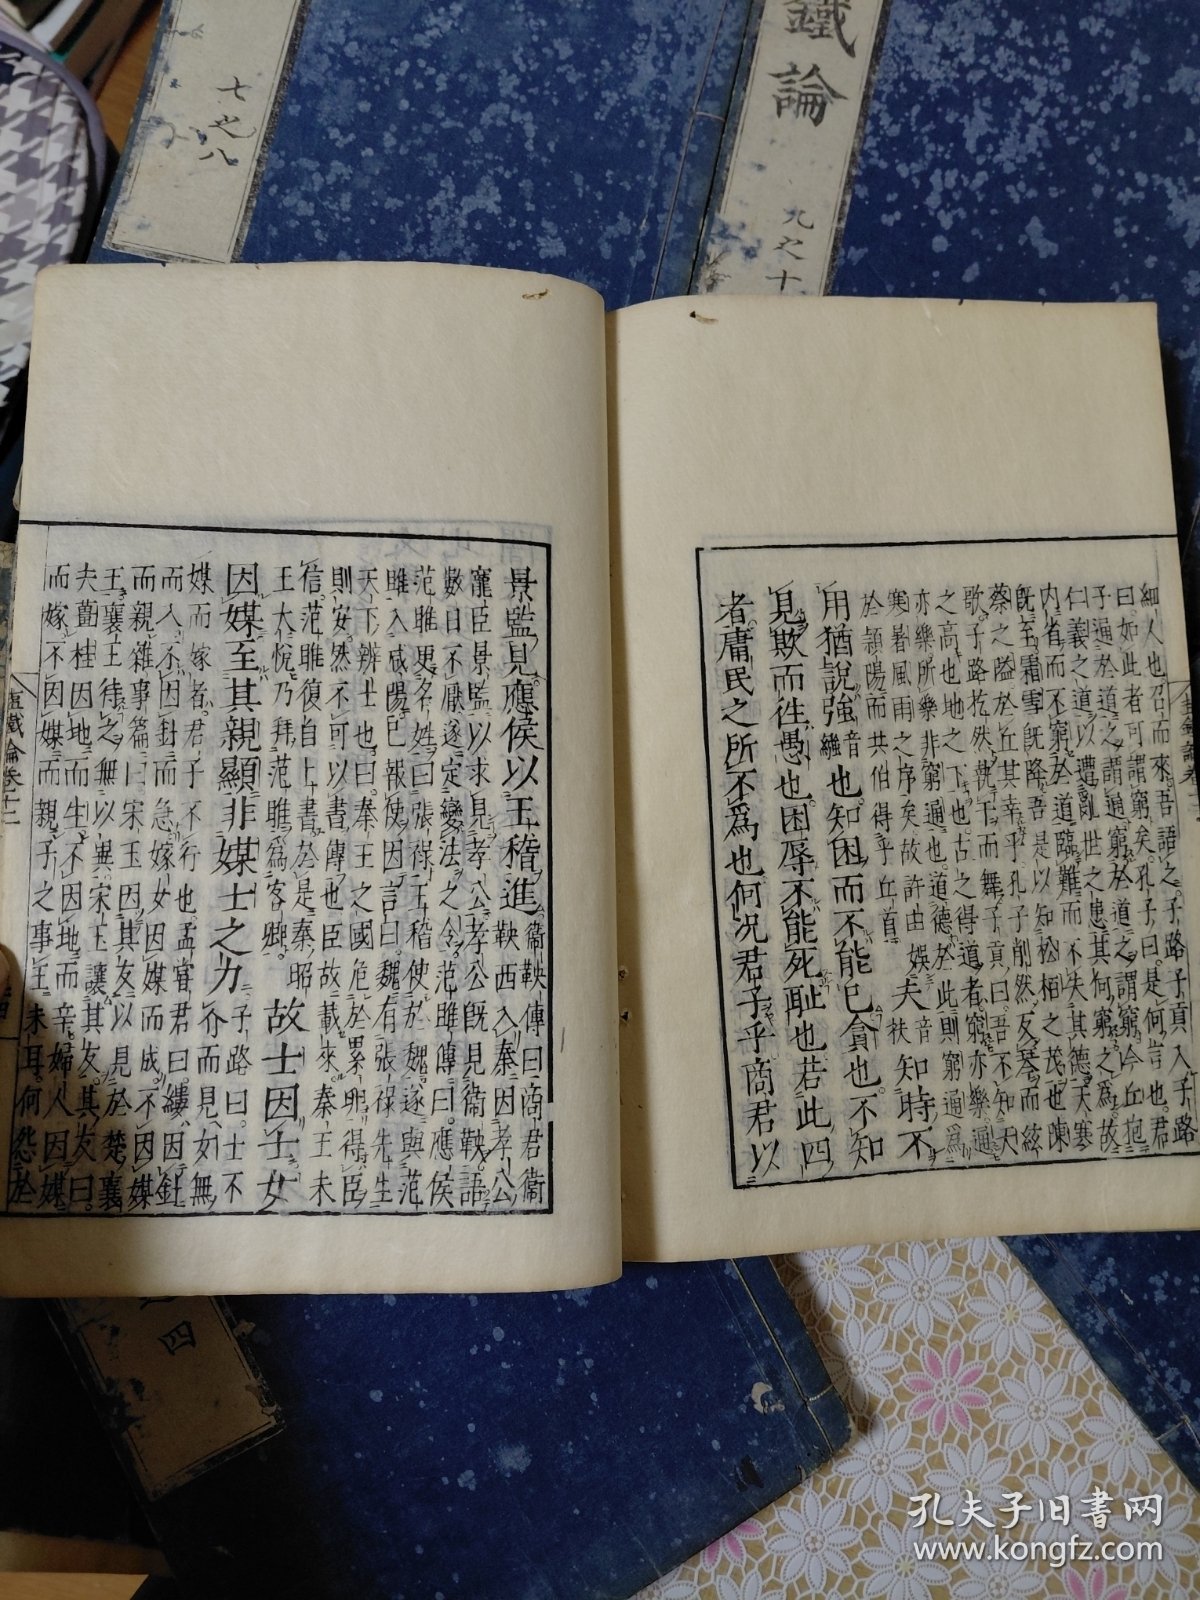 鐵論
九之十
七之八
四
細人也召而來吾語之子路子貢入子路
曰如此者可謂窮矣孔子曰是何言也君
子通於道之謂通窮於道之謂窮今丘抱
仁義之道以遭亂世之患其何窮之爲故
內省而不窮於道臨難而不失其德天寒
既至霜雪既降吾是以知松柏之茂也陳
蔡之隘於丘其幸乎孔子削然反琴而絃
歌子路扢然執干而舞子貢曰吾不知天
之高也地之下也古之得道者窮亦樂通
亦樂所樂非窮通也道德於此則窮通爲
寒暑風雨之序矣故許由娛
於頴陽而共伯得乎丘首
夫音扶知時不
用猶說強音繈也知困而不能已貪也不知
見欺而徃愚也困辱不能死耻也若此四
者庸民之所不爲也何况君子乎商君以
景監見應侯以王稽進
鞅傳曰商君衞
鞅西入秦因孝公
寵臣景監以求見孝公孝公既見衞鞅語
數日不厭遂定變法之令范雎傳曰應侯
范雎更名姓曰張祿王稽使於魏遂與范
雎入咸陽已報使因言曰魏有張祿先生
天下辨士也曰秦王之國危於累卵得臣
則安然不可以書傳也臣故載來秦王未
信范雎復自上書於是秦昭
王大悅乃拜范雎爲客卿
故士因士女
因媒至其親顯非媒士之力
子路曰士不
介而見女無
媒而嫁者君子不行也孟嘗君曰縷因針
而入不因針而急嫁女因媒而成不因媒
而親雜事篇曰宋玉因其友以見於楚襄
王襄王待之無以異宋玉讓其友其友曰
夫薑桂因地而生不因地而辛婦人因媒
而嫁不因媒而親子之事王未耳何怨於
鹽鐵論卷十二